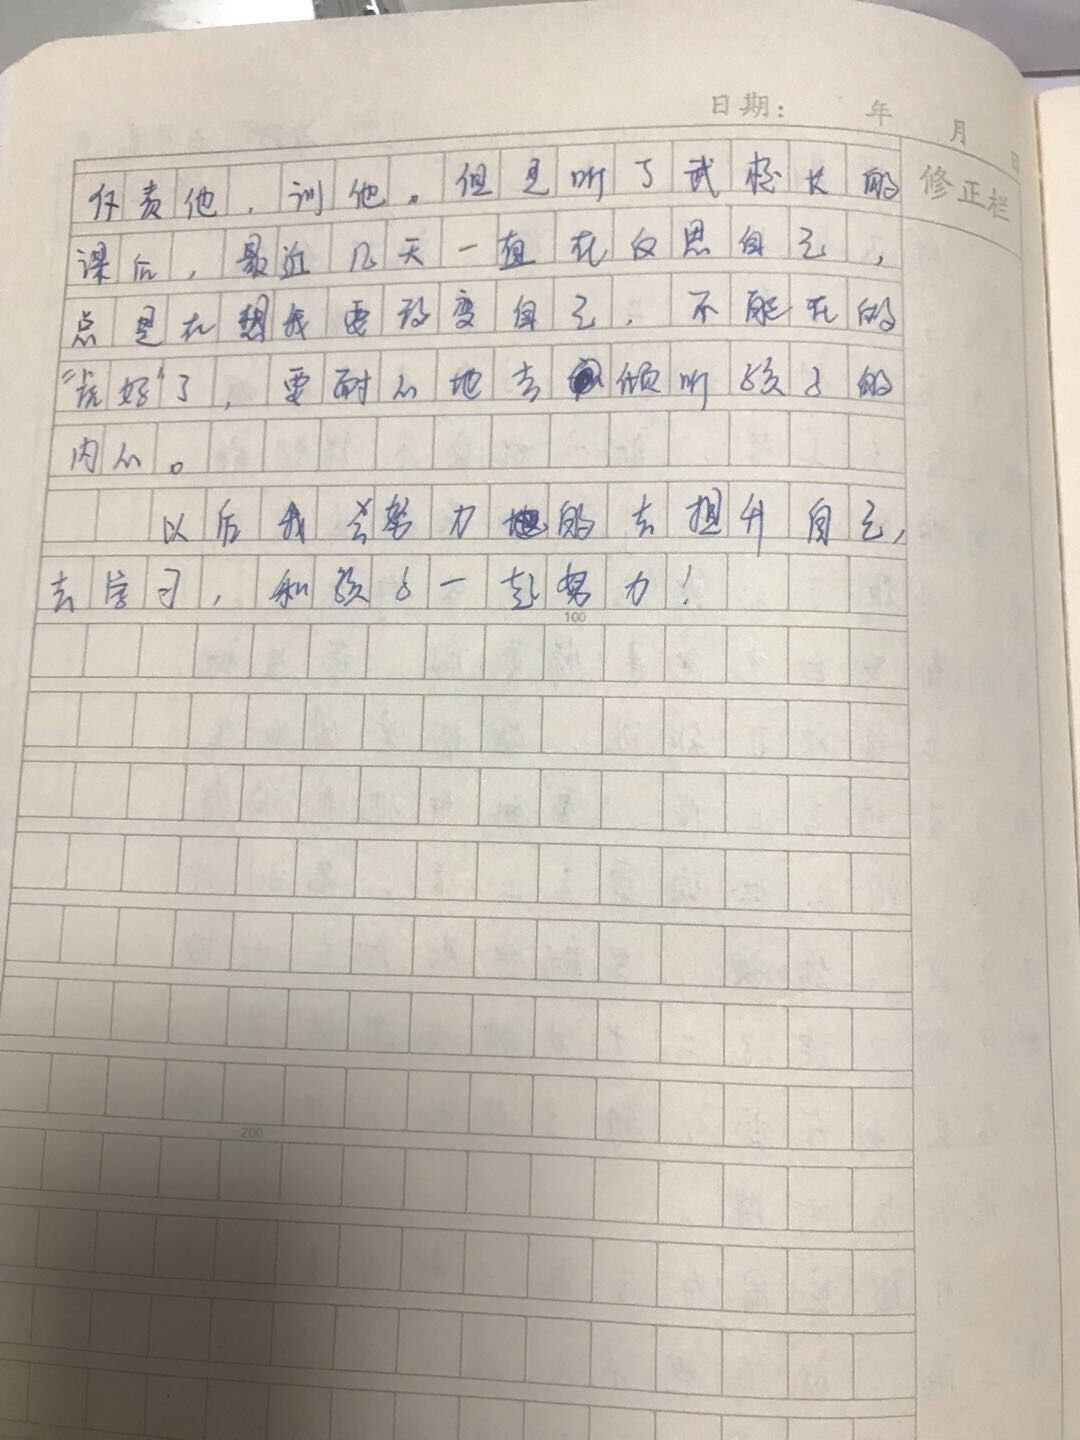 日期： 年 月 日
修正栏
责他，训他。但是听了武校长的
课后，最近几天一直在反思自己，
总是在想我要改变自己，不能在的
了，要耐心地去倾听孩子的
内心。
以后我会努力的去提升自己，
去学习，和孩子一起努力！
100
200